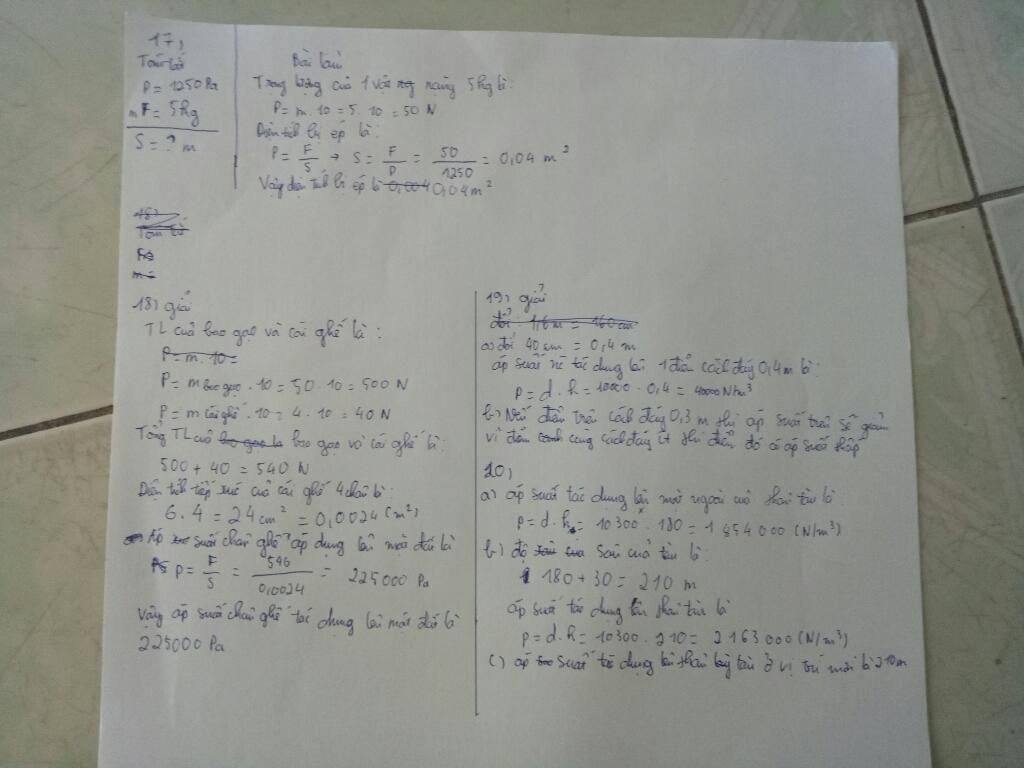 17,
Tóm tắt
P = 1250 Pa
m F = 5 kg
S = ? m
Bài làm
Trọng lượng của 1 vật nặng 5kg là:
P = m . 10 = 5 . 10 = 50 N
Diện tích bị ép là:
P = F/S → S = F/P = 50/1250 = 0,04 m²
Vậy diện tích bị ép là 0,004 0,04 m²
18)
Tóm tắt
m =
18) giải
TL của bao gạo và cái ghế là:
P = m . 10 =
P = m bao gạo . 10 = 50 . 10 = 500 N
P = m cái ghế . 10 = 4 . 10 = 40 N
Tổng TL của bao gạo và cái ghế là:
500 + 40 = 540 N
Diện tích tiếp xúc của cái ghế 4 chân là:
6 . 4 = 24 cm² = 0,0024 (m²)
Áp suất chân ghế áp dụng lên mặt đất là
P = F/S = 540/0,0024 = 225000 Pa
Vậy áp suất chân ghế tác dụng lên mặt đất là
225000 Pa
19) giải
đổi 1,6 m = 160 cm
a) đổi 40 cm = 0,4 m
áp suất tác dụng lên 1 điểm cách đáy 0,4 m là:
P = d . h = 10000 . 0,4 = 40000 N/m³
b) Nếu điểm trên cách đáy 0,3 m thì áp suất trên sẽ giảm
vì điểm càng cách đáy ít thì điểm đó có áp suất thấp
20,
a) áp suất tác dụng lên mặt ngoài của thân tàu là
P = d . h = 10300 . 180 = 1 854 000 (N/m³)
b) độ sâu của tàu là:
180 + 30 = 210 m
áp suất tác dụng lên thân tàu là
P = d . h = 10300 . 210 = 2 163 000 (N/m³)
c) áp suất tác dụng lên thân tàu ở vị trí mới là 210 m